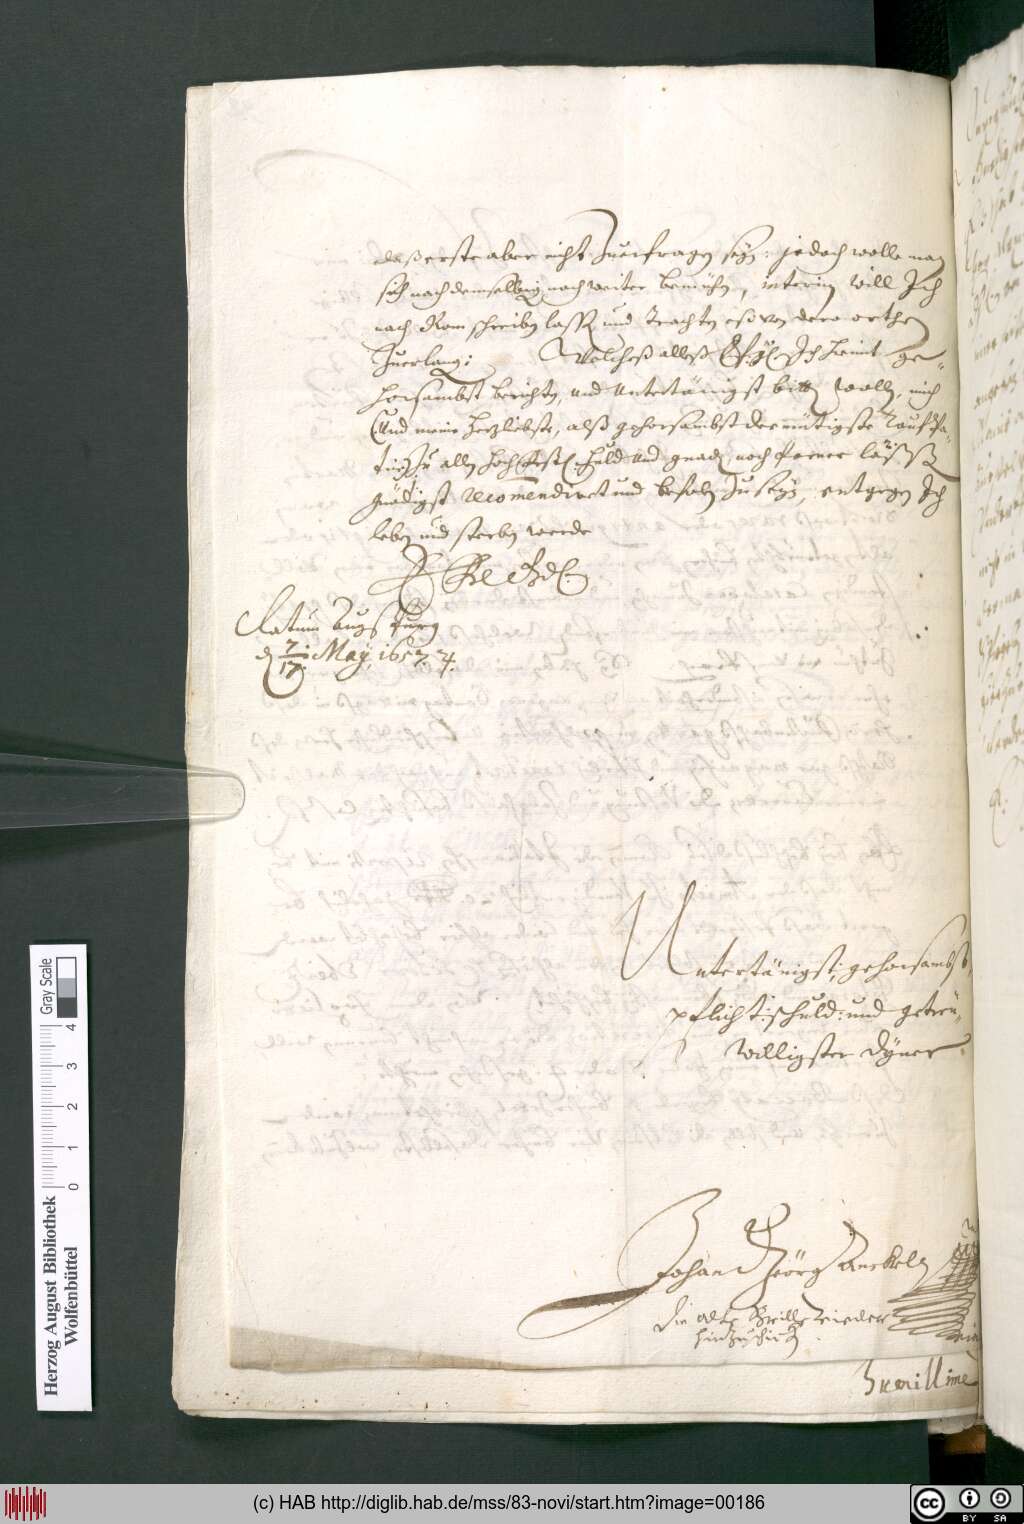 das erste aber nicht Zuerfragen sey: jedoch wolle man
sich nach demselbigen noch weiter bemühen, interim will Ich
nach Rom schreiben lassen und trachten eß von dero orthen
Zuerlangen: Welcheß alleß Ich hiemit ge-
horsambst berichten, und Untertänigst bitten wollen, mich
Und meine Hertzliebste, alß gehorsambst demütigste
Zu allen hoch Huld und gnaden noch ferner
gnädigst recomendiret und befolen Zu seyn, entgegen Ich
leben und sterben werde
Datum Augspurg
d. 7./17. May, 1657.
Untertänigst, gehorsambst,
pflicht: schuld: und getreü-
willigster Dyner
Johan Geörg Anckel
die alte Brill wieder
hin Zu
Herzog August Bibliothek
Wolfenbüttel
0 1 2 3 4
Gray Scale
(c) HAB http://diglib.hab.de/mss/83-novi/start.htm?image=00186
cc BY SA